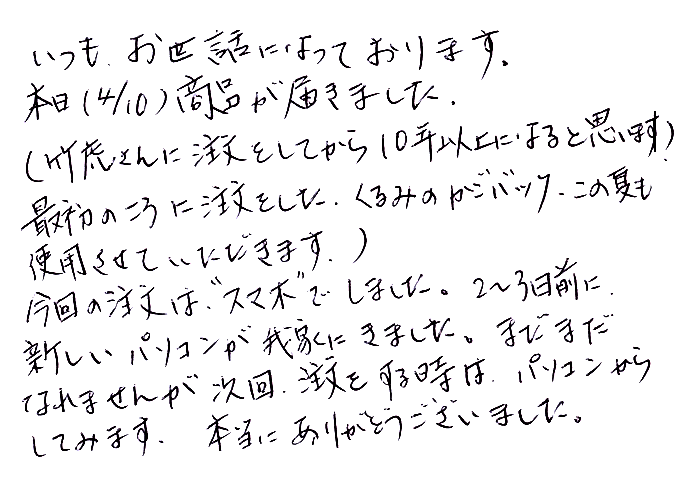 いつも、お世話になっております。
本日(4/10)商品が届きました。
(竹虎さんに注文をしてから10年以上になると思います)
最初のころに注文をした、くるみのカゴバック、この夏も
使用させていただきます。)
今回の注文は、"スマホ"でしました。2〜3日前に、
新しいパソコンが我家にきました。まだまだ
なれませんが次回、注文をする時は、パソコンから
してみます。 本当にありがとうございました。